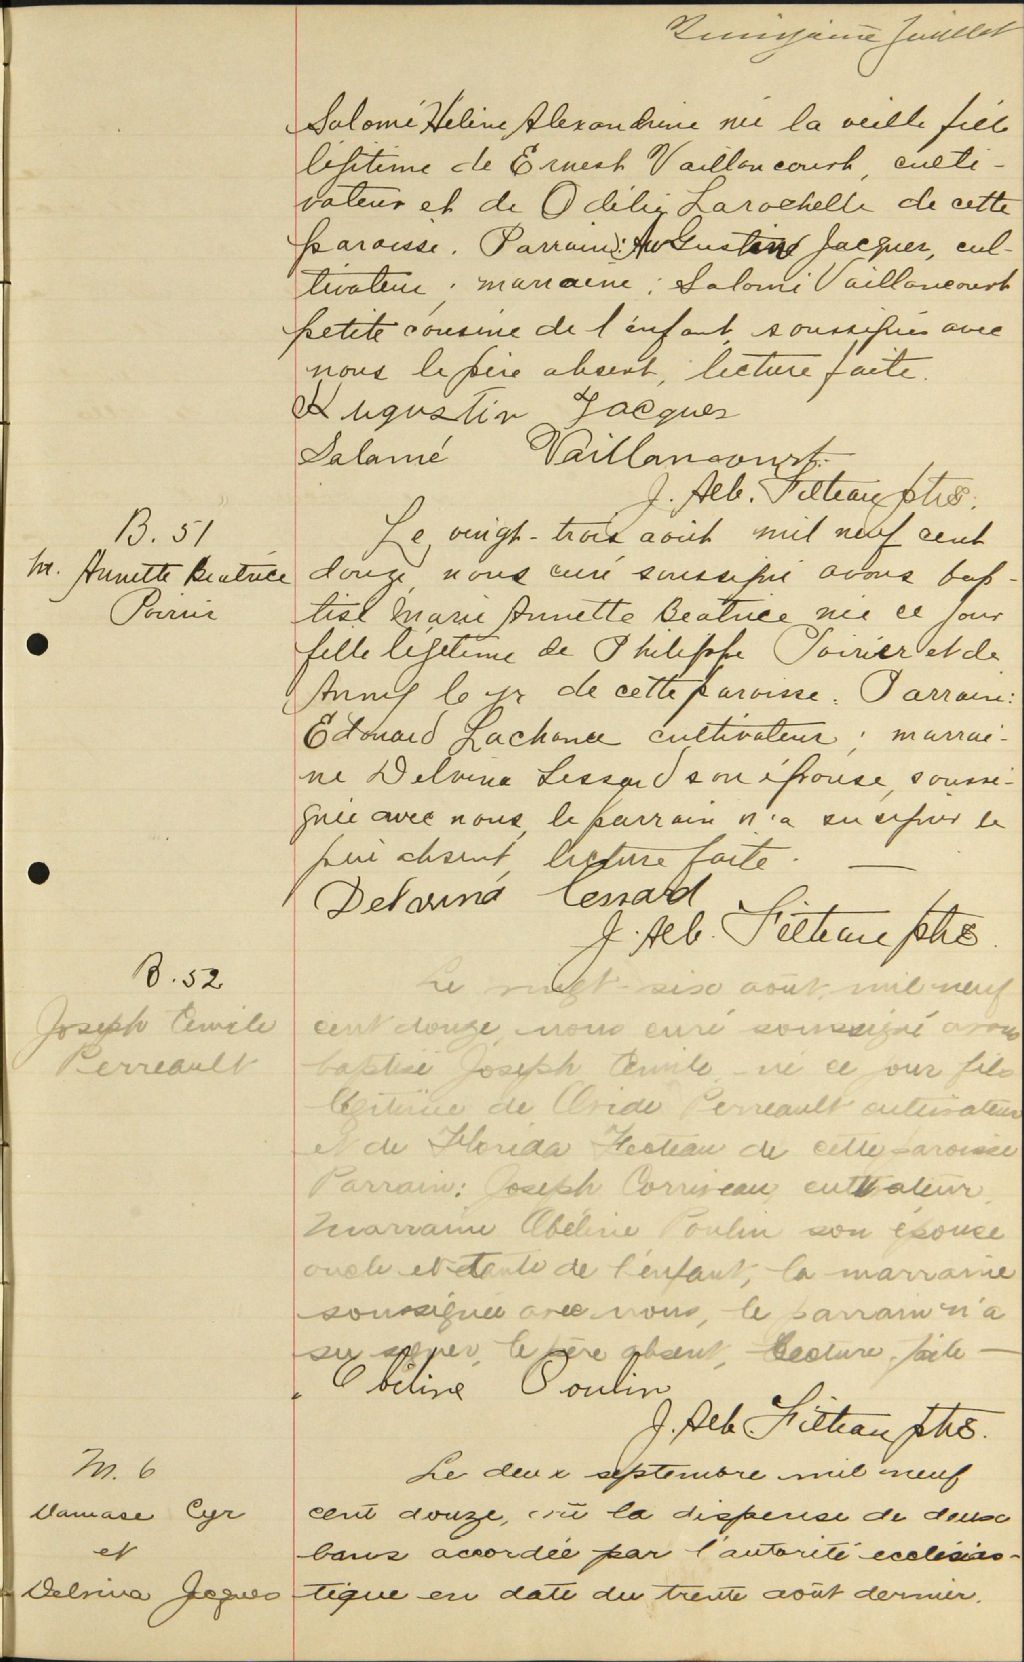 feuillet
Salomé Hélène Alexandrine née la veille fille
légitime de Ernest Vaillancourt, culti-
vateur et de Odélie Larochelle de cette
paroisse. Parrain: Augustin Jacques, cul-
tivateur; marraine: Salomé Vaillancourt
petite cousine de l'enfant, soussignés avec
nous le père absent, lecture faite.
Augustin Jacques
Salomé Vaillancourt
J. Alb. Filteau ptre.
B. 51
M. Annette Beatrice
Poirier
Le vingt-trois août mil neuf cent
douze, nous curé soussigné avons bap-
tisé Marie Annette Beatrice née ce jour
fille légitime de Philippe Poirier et de
Anny de cette paroisse. Parrain:
Edouard Lachance cultivateur; marrai-
ne Delvina Lessard son épouse, soussi-
gnée avec nous, le parrain n'a su signer le
père absent, lecture faite. —
Delvina Lessard
J. Alb. Filteau ptre.
B. 52
Joseph Emile
Perreault
Le vingt-six août, mil neuf
cent douze, nous curé soussigné avons
baptisé Joseph Emile né ce jour fils
légitime de Ovide Perreault cultivateur
et de Florida Fecteau de cette paroisse
Parrain: Joseph Corriveau, cultivateur,
Marraine Obéline Poulin son épouse
oncle et tante de l'enfant, la marraine
soussignée avec nous, le parrain n'a
su signer, le père absent, lecture faite —
Obéline Poulin
J. Alb. Filteau ptre.
M. 6
Damase Cyr
et
Delvina Jacques
Le deux septembre mil neuf
cent douze, vû la dispense de deux
bans accordée par l'autorité ecclésias-
tique en date du trente août dernier.